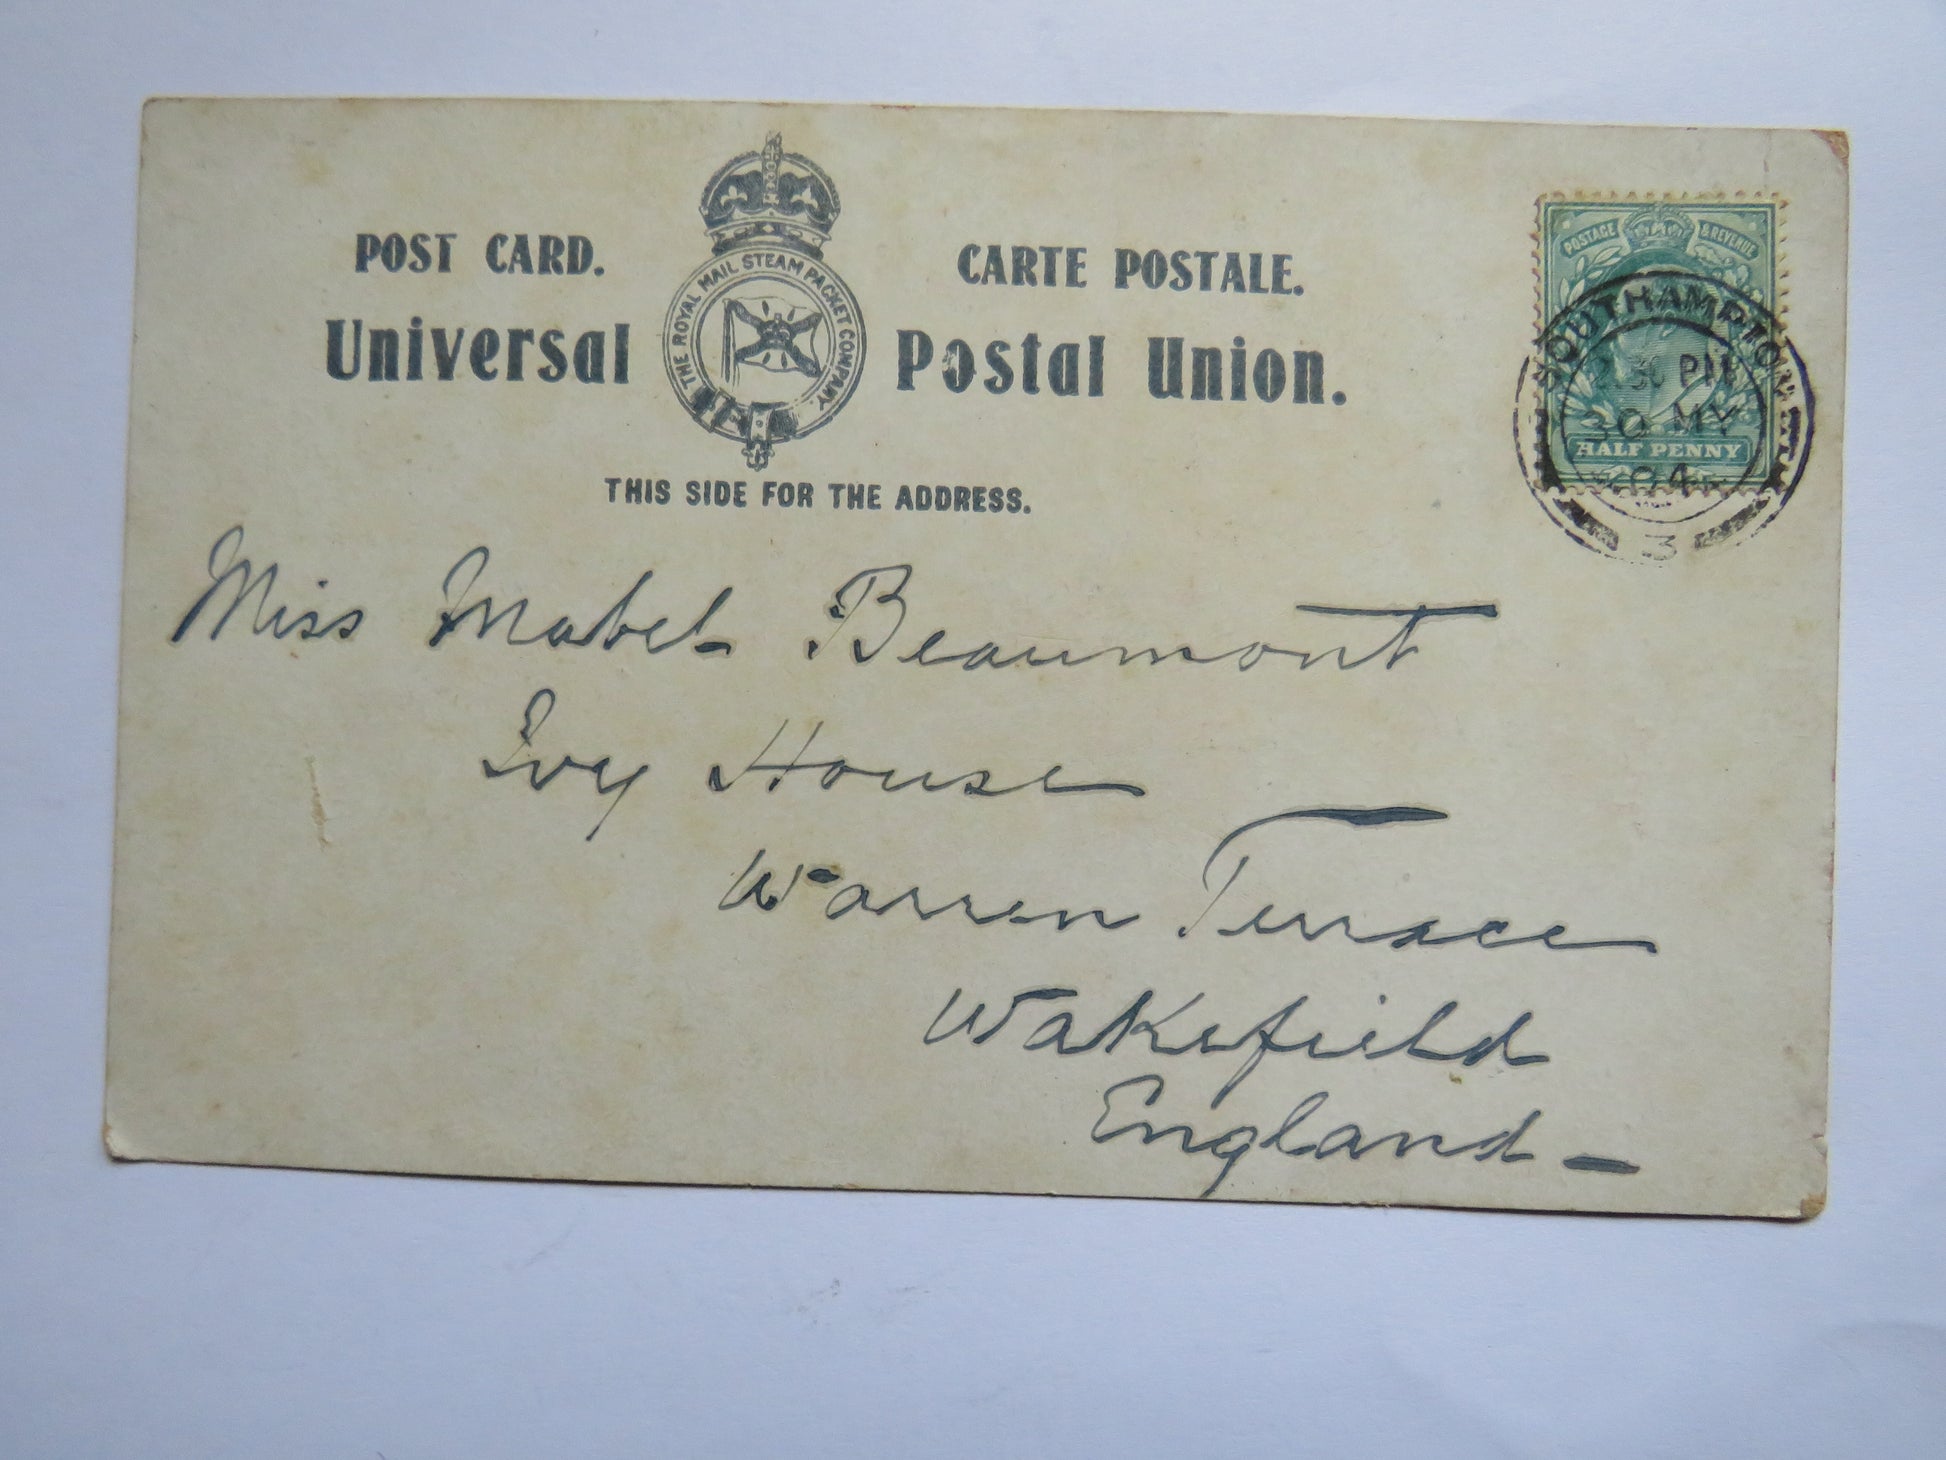 POST CARD.
CARTE POSTALE.
THE ROYAL MAIL STEAM PACKET COMPANY.
Universal Postal Union.
THIS SIDE FOR THE ADDRESS.
POSTAGE & REVENUE
HALF PENNY
SOUTHAMPTON
30 PM
30 MY
04
3
Miss Mabel Beaumont
Ivy House
Warren Terrace
Wakefield
England –